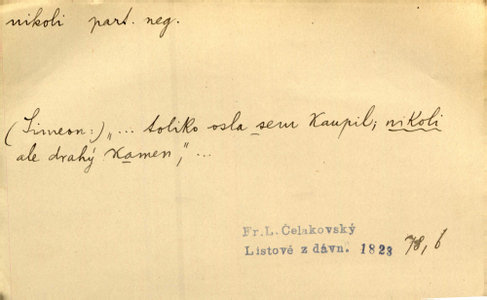 nikoli part. neg.
(Simeon:) „... toliko osla sem Kaupil; nikoli
ale drahý Kamen," ...
Fr. L. Čelakovský
Listové z dávn. 1823 78, 6